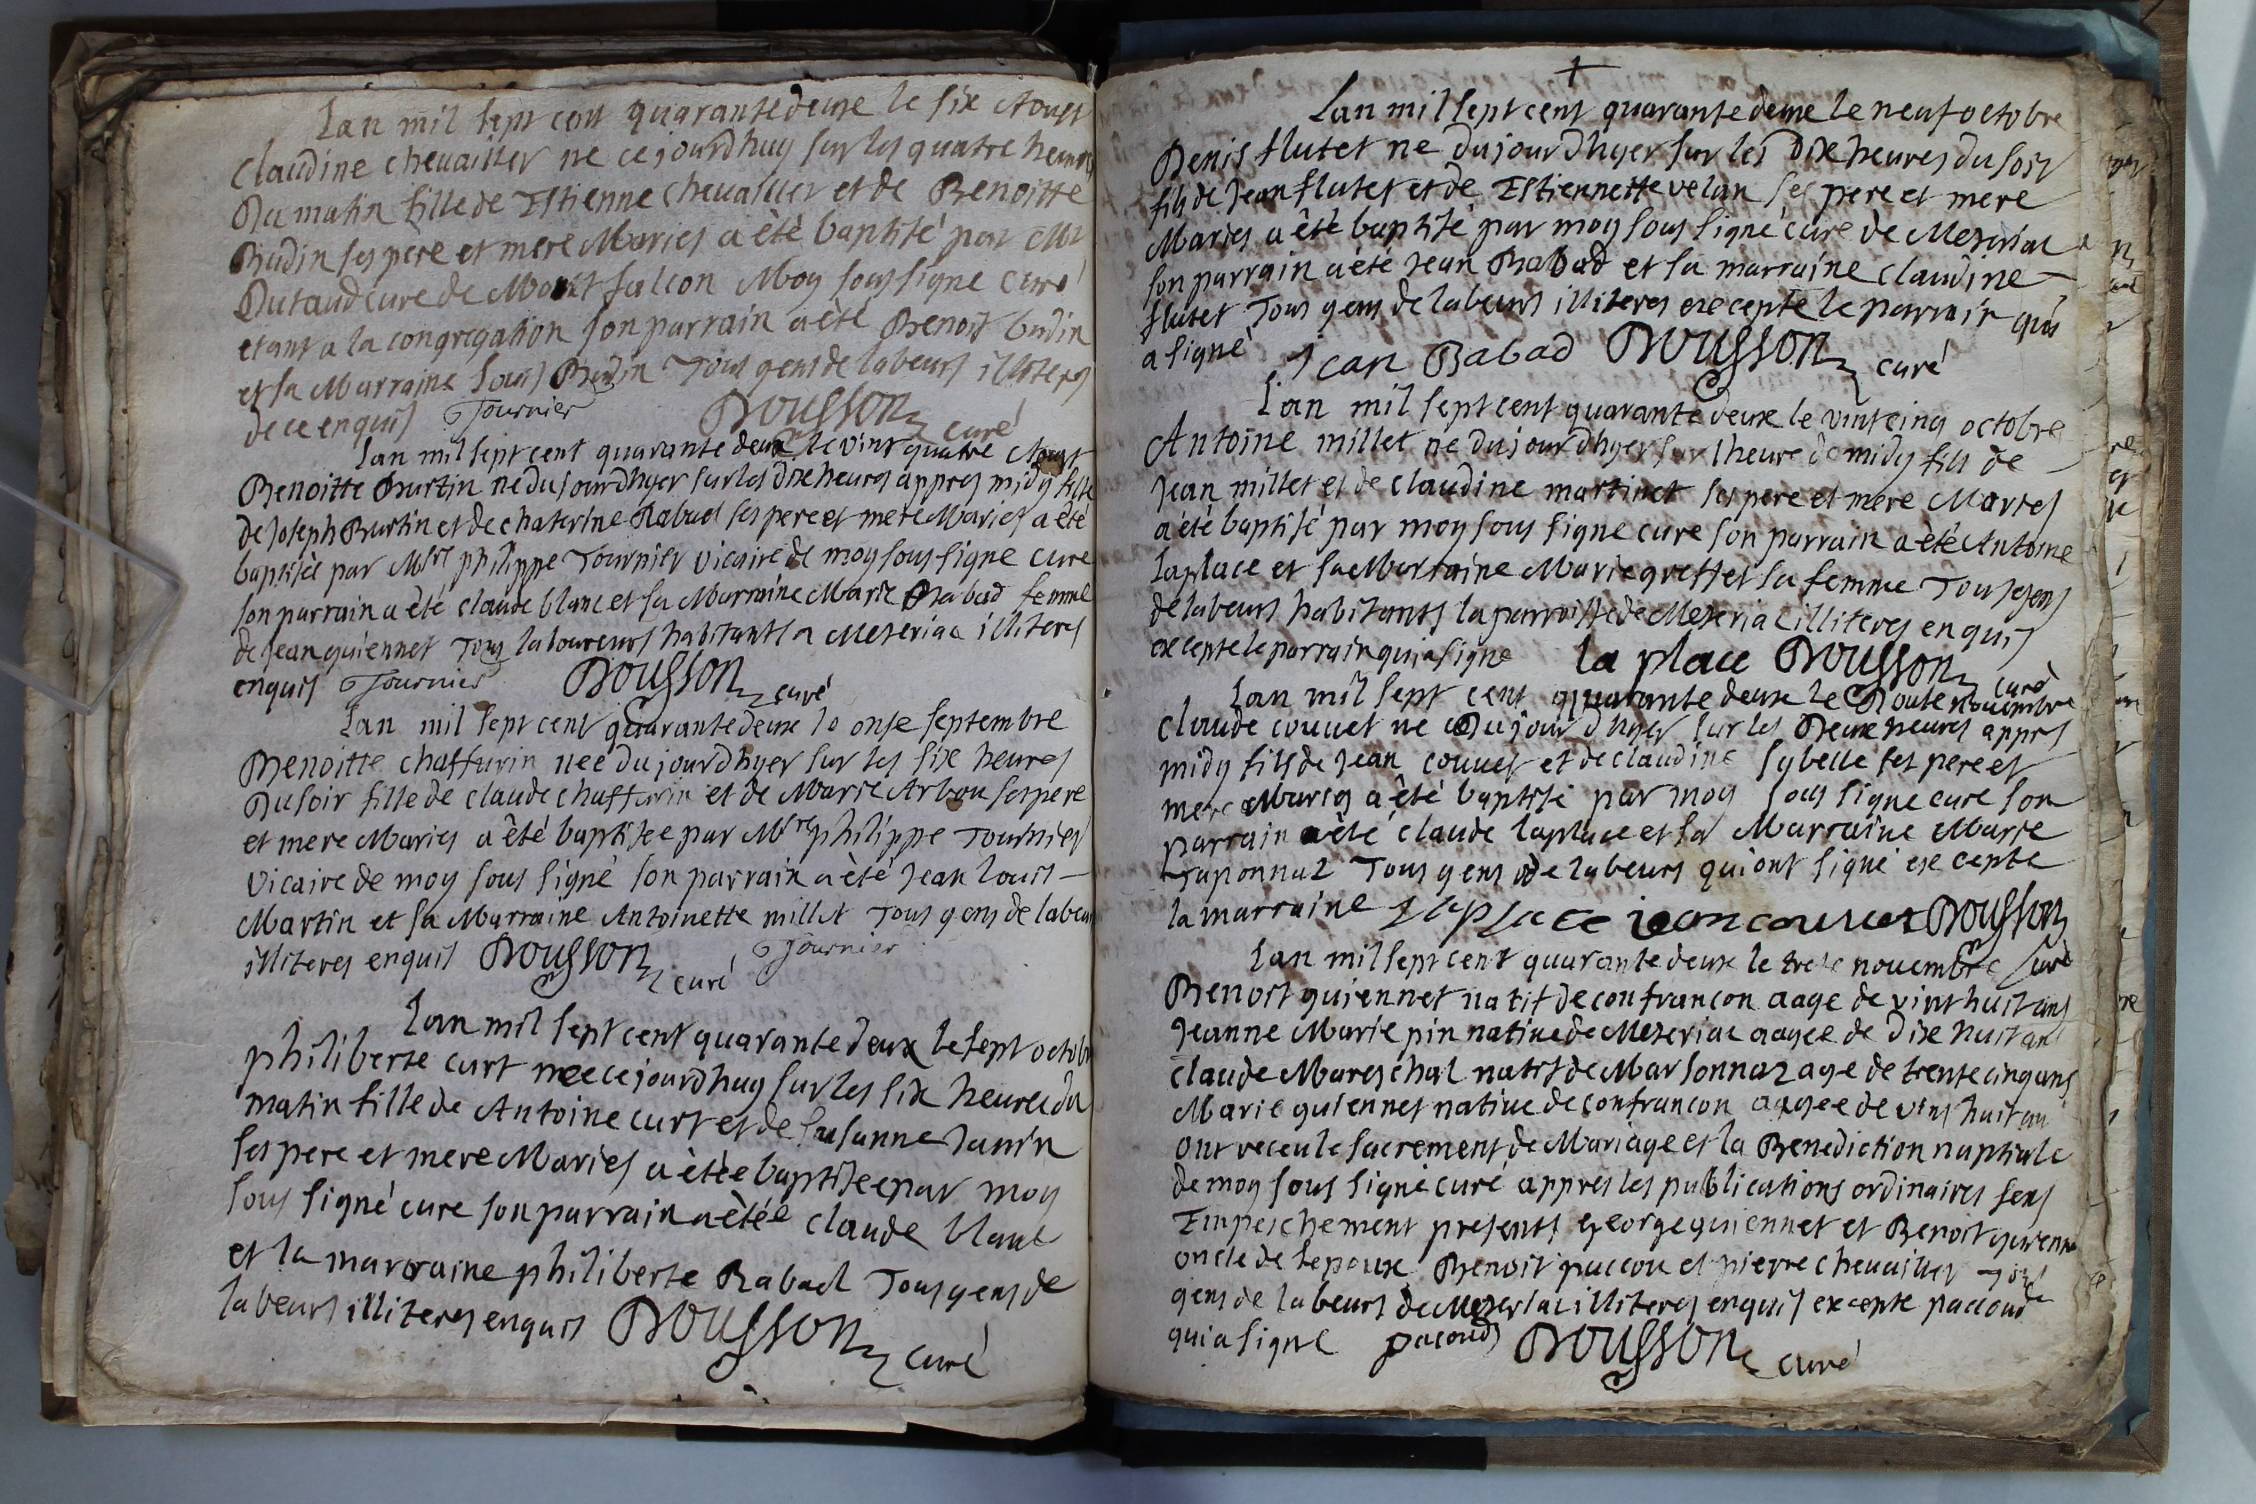 Lan mil sept cent quarante deux le six Aoust
Claudine chevaillier ne ce jourdhuy sur les quatre heures
Du matin fille de Estienne chevaillier et de Benoitte
Budin ses pere et mere Maries a été baptisé par Mr
Dutaud curé de Montfalcon Moy sous signe curé
etant a la congregation son parrain a été Benoit budin
et sa Marraine Louis Budin Tous gens de labeurs illiteres
de ce enquis Tournier Bousson curé
Lan mil sept cent quarante deux le vint quatre Aoust
Benoitte Burtin ne du jourdhyer sur les dix heures appres midy fille
de Joseph Burtin et de chaterine Rabuel ses pere et mere Maries a été
baptisée par Mre philippe Tournier vicaire de moy sous signe cure
son parrain a été claude blanc et sa Marraine Marie Babad femme
de Jean guiennet Tous laboureurs habitants a Mezeriac illiteres
enquis Tournier Bousson curé
Lan mil sept cent quarante deux le onse septembre
Benoitte chaffurin nee du jourdhyer sur les six heures
Du soir fille de claude chaffurin et de Marie Arbou ses pere
et mere Maries a été baptisee par Mre philippe Tournier
vicaire de moy sous signé son parrain a été Jean louis
Martin et sa Marraine Antoinette millet Tous gens de labeurs
illiteres enquis Bousson curé Tournier
Lan mil sept cent quarante deux le sept octobre
philiberte curt nee ce jourdhuy sur les six heures du
matin fille de Antoine curt et de susanne Janin
ses pere et mere Maries a étée baptisee par moy
sous signé cure son parrain a étée claude blanc
et la marraine philiberte Rabuel Tous gens de
labeurs illiteres enquis Bousson curé
Lan mil sept cent quarante deux le neuf octobre
Denis flutet ne du jourdhyer sur les dix heures du soir
fils de Jean flutet et de Estiennette velan ses pere et mere
Maries a été baptisé par moy sous signé cure de Mezeriac
son parrain a été Jean Babad et sa marraine claudine
flutet Tous gens de labeurs illiteres excepte le parrain qui
a signé Jean Babad Bousson curé
Lan mil sept cent quarante deux le vint cinq octobre
Antoine millet ne du jourdhyer sur lheure de midy fils de
Jean millet et de claudine martinet ses pere et mere Maries
a été baptisé par moy sous signe cure son parrain a été Antoine
Laplace et sa Marraine Marie greffet sa femme Tous gens
de labeurs habitants la parroisse de Mezeriac illiteres enquis
excepte le parrain qui a signe la place Bousson curé
Lan mil sept cent quarante deux le Douze novembre
claude couuet ne du jourdhyer sur les Deux heures appres
midy fils de Jean couuet et de claudine sybelle ses pere et
mere Maries a été baptisé par moy sous signe cure son
parrain a été claude laplace et sa Marraine Marie
Taponnaz Tous gens de labeurs qui ont signé excepte
la marraine laplace jean couuet Bousson
curé
Lan mil sept cent quarante deux le treze novembre
Benoit guiennet natif de confrancon aage de vint huit ans
Jeanne Marie pin native de Mezeriac aagee de dix huit ans
claude Mareschal natif de Marsonnaz age de trente cinq ans
Marie guiennet native de confrancon aagee de vint huit an
ont receu le sacrement de Mariage et la Benediction nuptiale
de moy sous signé curé appres les publications ordinaires sens
Empeschement presents George guiennet et Benoit guienne
oncle de lepoux Benoit paccou et pierre chevaillier Tous
gens de labeurs de Mezeriac illiteres enquis excepte paccoud
qui a signe pacoud Bousson curé